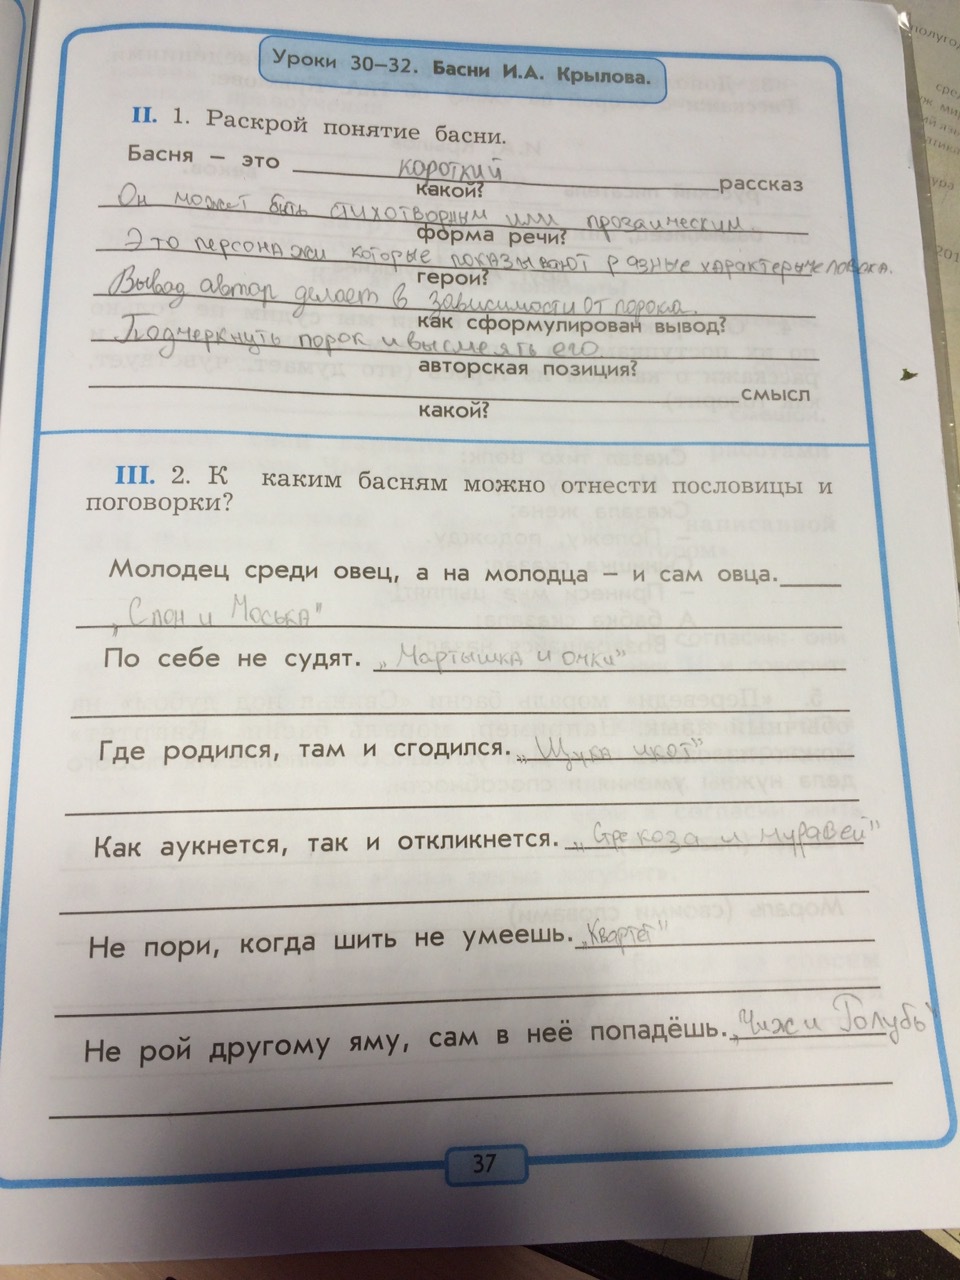 Уроки 30–32. Басни И.А. Крылова.
II. 1. Раскрой понятие басни.
Басня – это короткий рассказ
какой?
Он может быть стихотворным или прозаическим
форма речи?
Это персонажи которые показывают разные характеры человека.
герои?
Вывод автор делает в зависимости от порока.
как сформулирован вывод?
Подчеркнуть порок и высмеять его.
авторская позиция?
смысл
какой?
III. 2. К каким басням можно отнести пословицы и
поговорки?
Молодец среди овец, а на молодца – и сам овца.
„Слон и Моська"
По себе не судят. „Мартышка и очки"
Где родился, там и сгодился. „Щука и кот"
Как аукнется, так и откликнется. „Стрекоза и муравей"
Не пори, когда шить не умеешь. „Квартет"
Не рой другому яму, сам в неё попадёшь. „Чиж и Голубь"
37